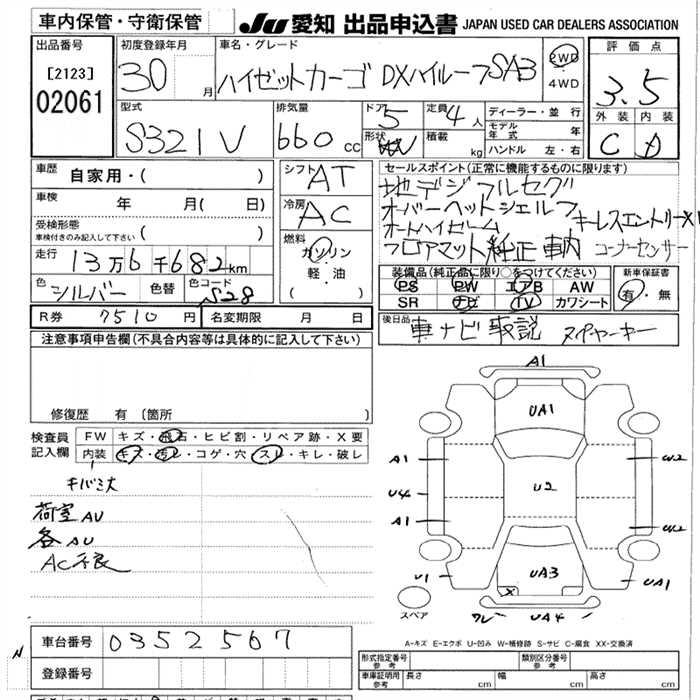 車内保管・守衛保管
JU 愛知 出品申込書 JAPAN USED CAR DEALERS ASSOCIATION
出品番号
[2123]
02061
初度登録年月
30 月
車名・グレード
ハイゼットカーゴ DXハイルーフSAⅢ
2WD
4WD
評価点
3.5
外装 内装
C D
型式
S321V
排気量
660 cc
ドア
5
形状
V
定員
4人
積載
kg
ディーラー・並行
モデル年式 年
ハンドル 左・右
車歴
自家用・( )
車検
年 月(日)
受検形態
車検付きのみ記入して下さい ( )
走行
13万6千682km
色
シルバー
色替
色コード
S28
シフト
AT
冷房
AC
燃料
ガソリン
軽・油
( )
セールスポイント(正常に機能するものに限ります)
地デジフルセグ
オーバーヘッドシェルフ キーレスエントリー
オートハイビーム
フロアマット純正車内 コーナーセンサー
装備品(純正品に限り○をつけてください)
PS PW エアB AW
SR ナビ TV カワシート
新車保証書
有・無
R券 7510円
名変期限 月 日
後日品
車ナビ取説 スペアーキー
注意事項申告欄(不具合内容等は具体的に記入して下さい)
修復歴 有(箇所 )
検査員記入欄
FW キズ・飛石・ヒビ割・リペア跡・X要
内装 キズ・汚レ・コゲ・穴・スレ・キレ・破レ
荷室AU
各AU
AC不良
A1
UA1
A1
U4
A1
U2
W2
W2
U1
UA3
UA1
X
スペア
UA4
A-キズ E-エクボ U-凹み W-補修跡 S-サビ C-腐食 XX-交換済
車台番号 0352567
登録番号
形式指定番号
参考
類別区分番号
参考
車庫証明用
参考
長さ cm
幅 cm
高さ cm